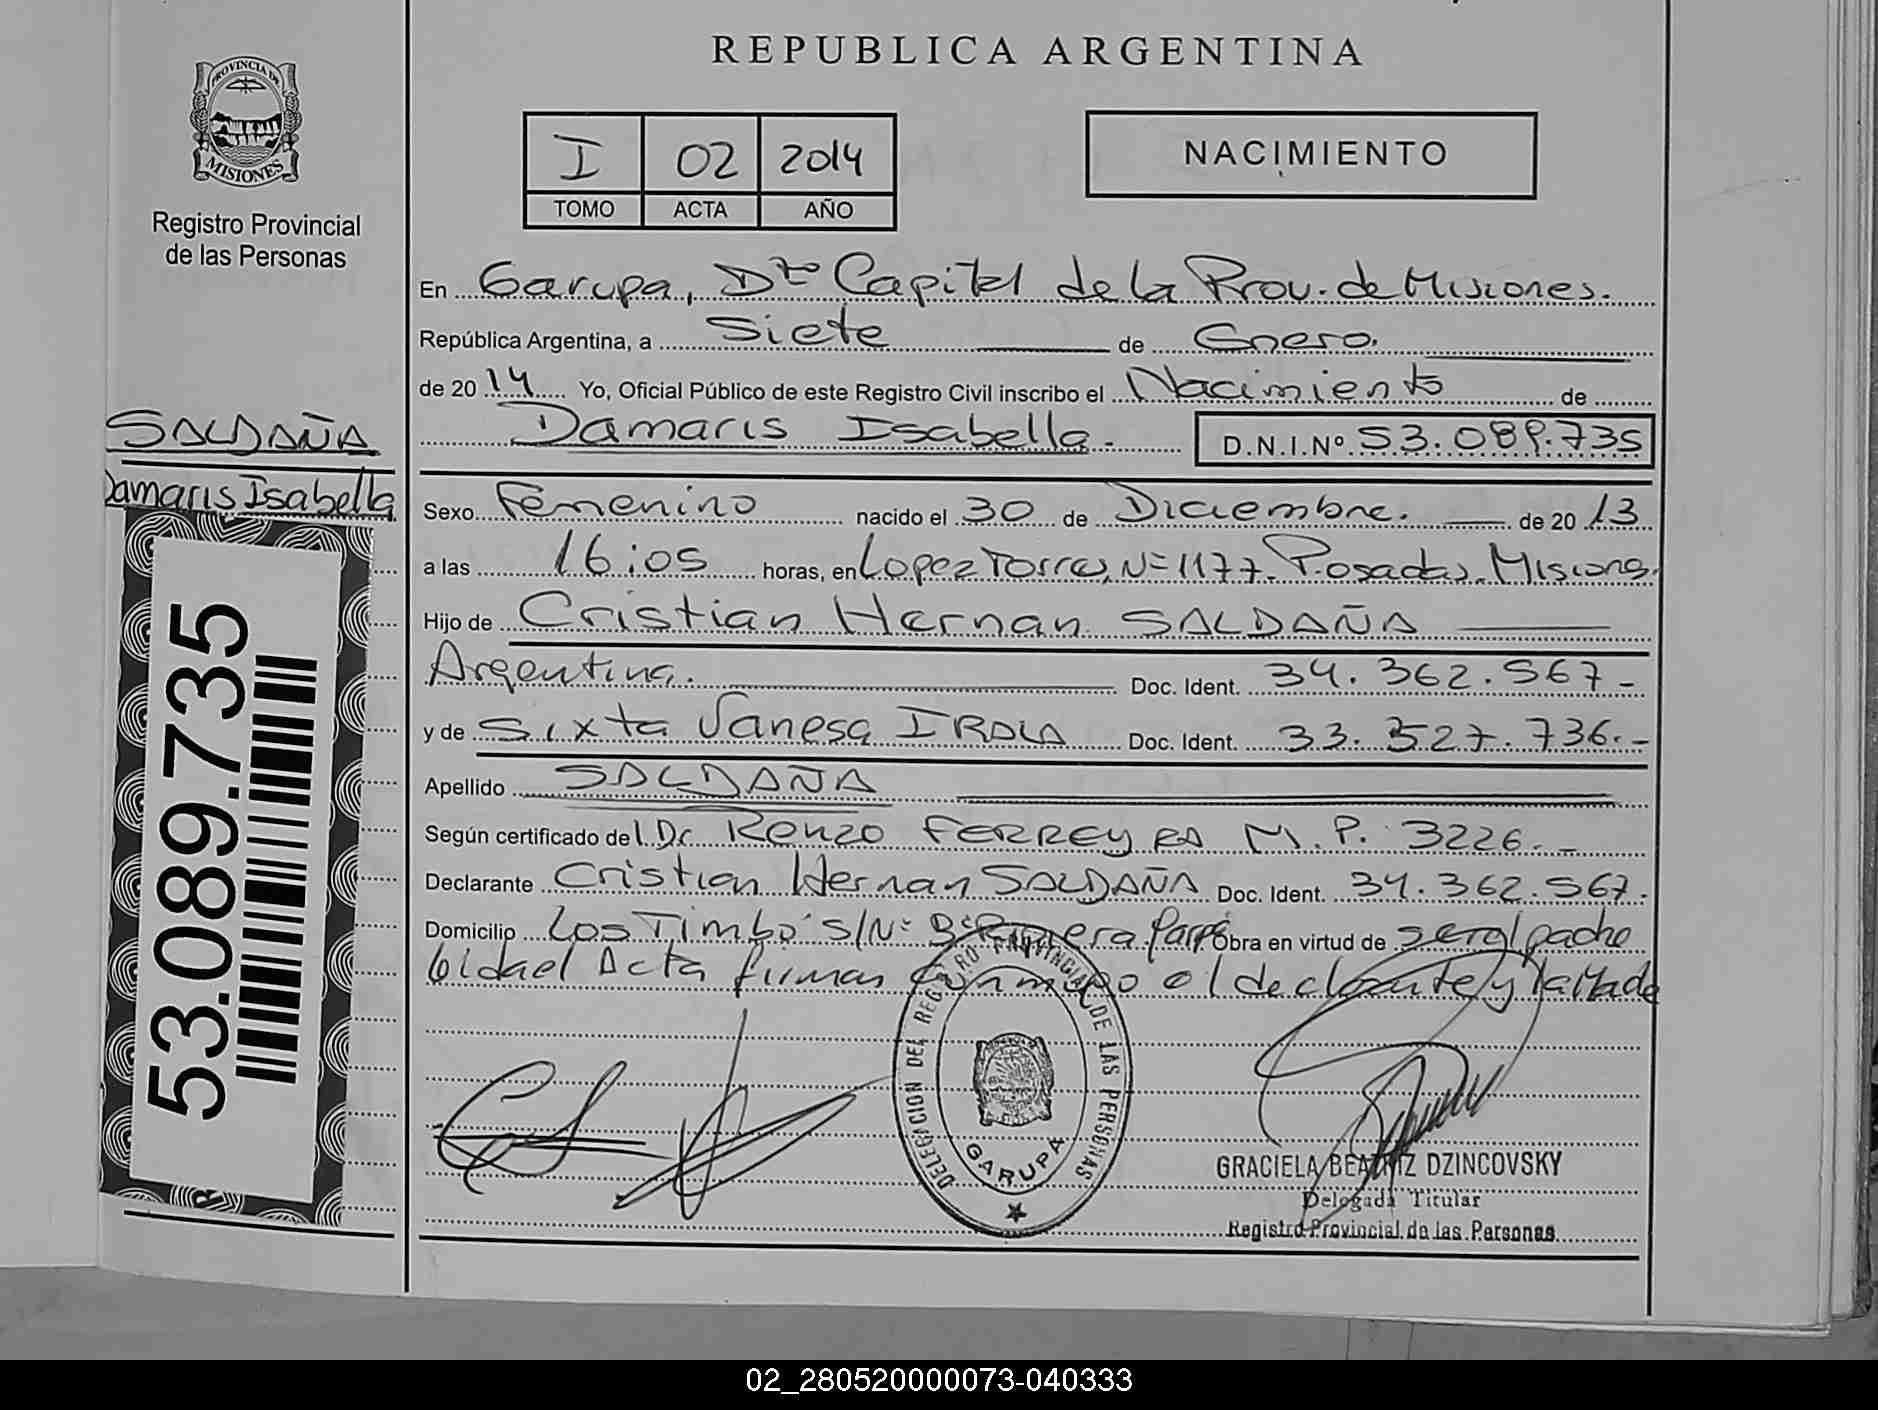 REPUBLICA ARGENTINA
PROVINCIA DE
MISIONES
Registro Provincial
de las Personas
I 02 2014
TOMO ACTA AÑO
NACIMIENTO
En Garupa, Dto Capital de la Prov. de Misiones.
República Argentina, a Siete de Enero.
de 2014 Yo, Oficial Público de este Registro Civil inscribo el Nacimiento de
Damaris Isabella. D.N.I.Nº 53.089.735
SALDAÑA
Damaris Isabella
Sexo Femenino nacido el 30 de Diciembre. de 2013
a las 16:05 horas, en Lopez Torres, Nº 1177. Posadas. Misiones.
Hijo de Cristian Hernan SALDAÑA
Argentina. Doc. Ident. 34.362.567-
y de Sixta Vanesa IROLA Doc. Ident. 33.527.736.-
Apellido SALDAÑA
Según certificado del Dr. Renzo FERREYRA M.P. 3226.-
Declarante Cristian Hernan SALDAÑA Doc. Ident. 34.362.567.
Domicilio Los Timbó S/Nº Bº Obra en virtud de ser el padre
el Acta firman conmigo el declarante y la Madre
53.089.735
DELEGACION DEL REGISTRO PROVINCIAL DE LAS PERSONAS
GARUPA
GRACIELA BEATRIZ DZINCOVSKY
Delegada Titular
Registro Provincial de las Personas
02_280520000073-040333